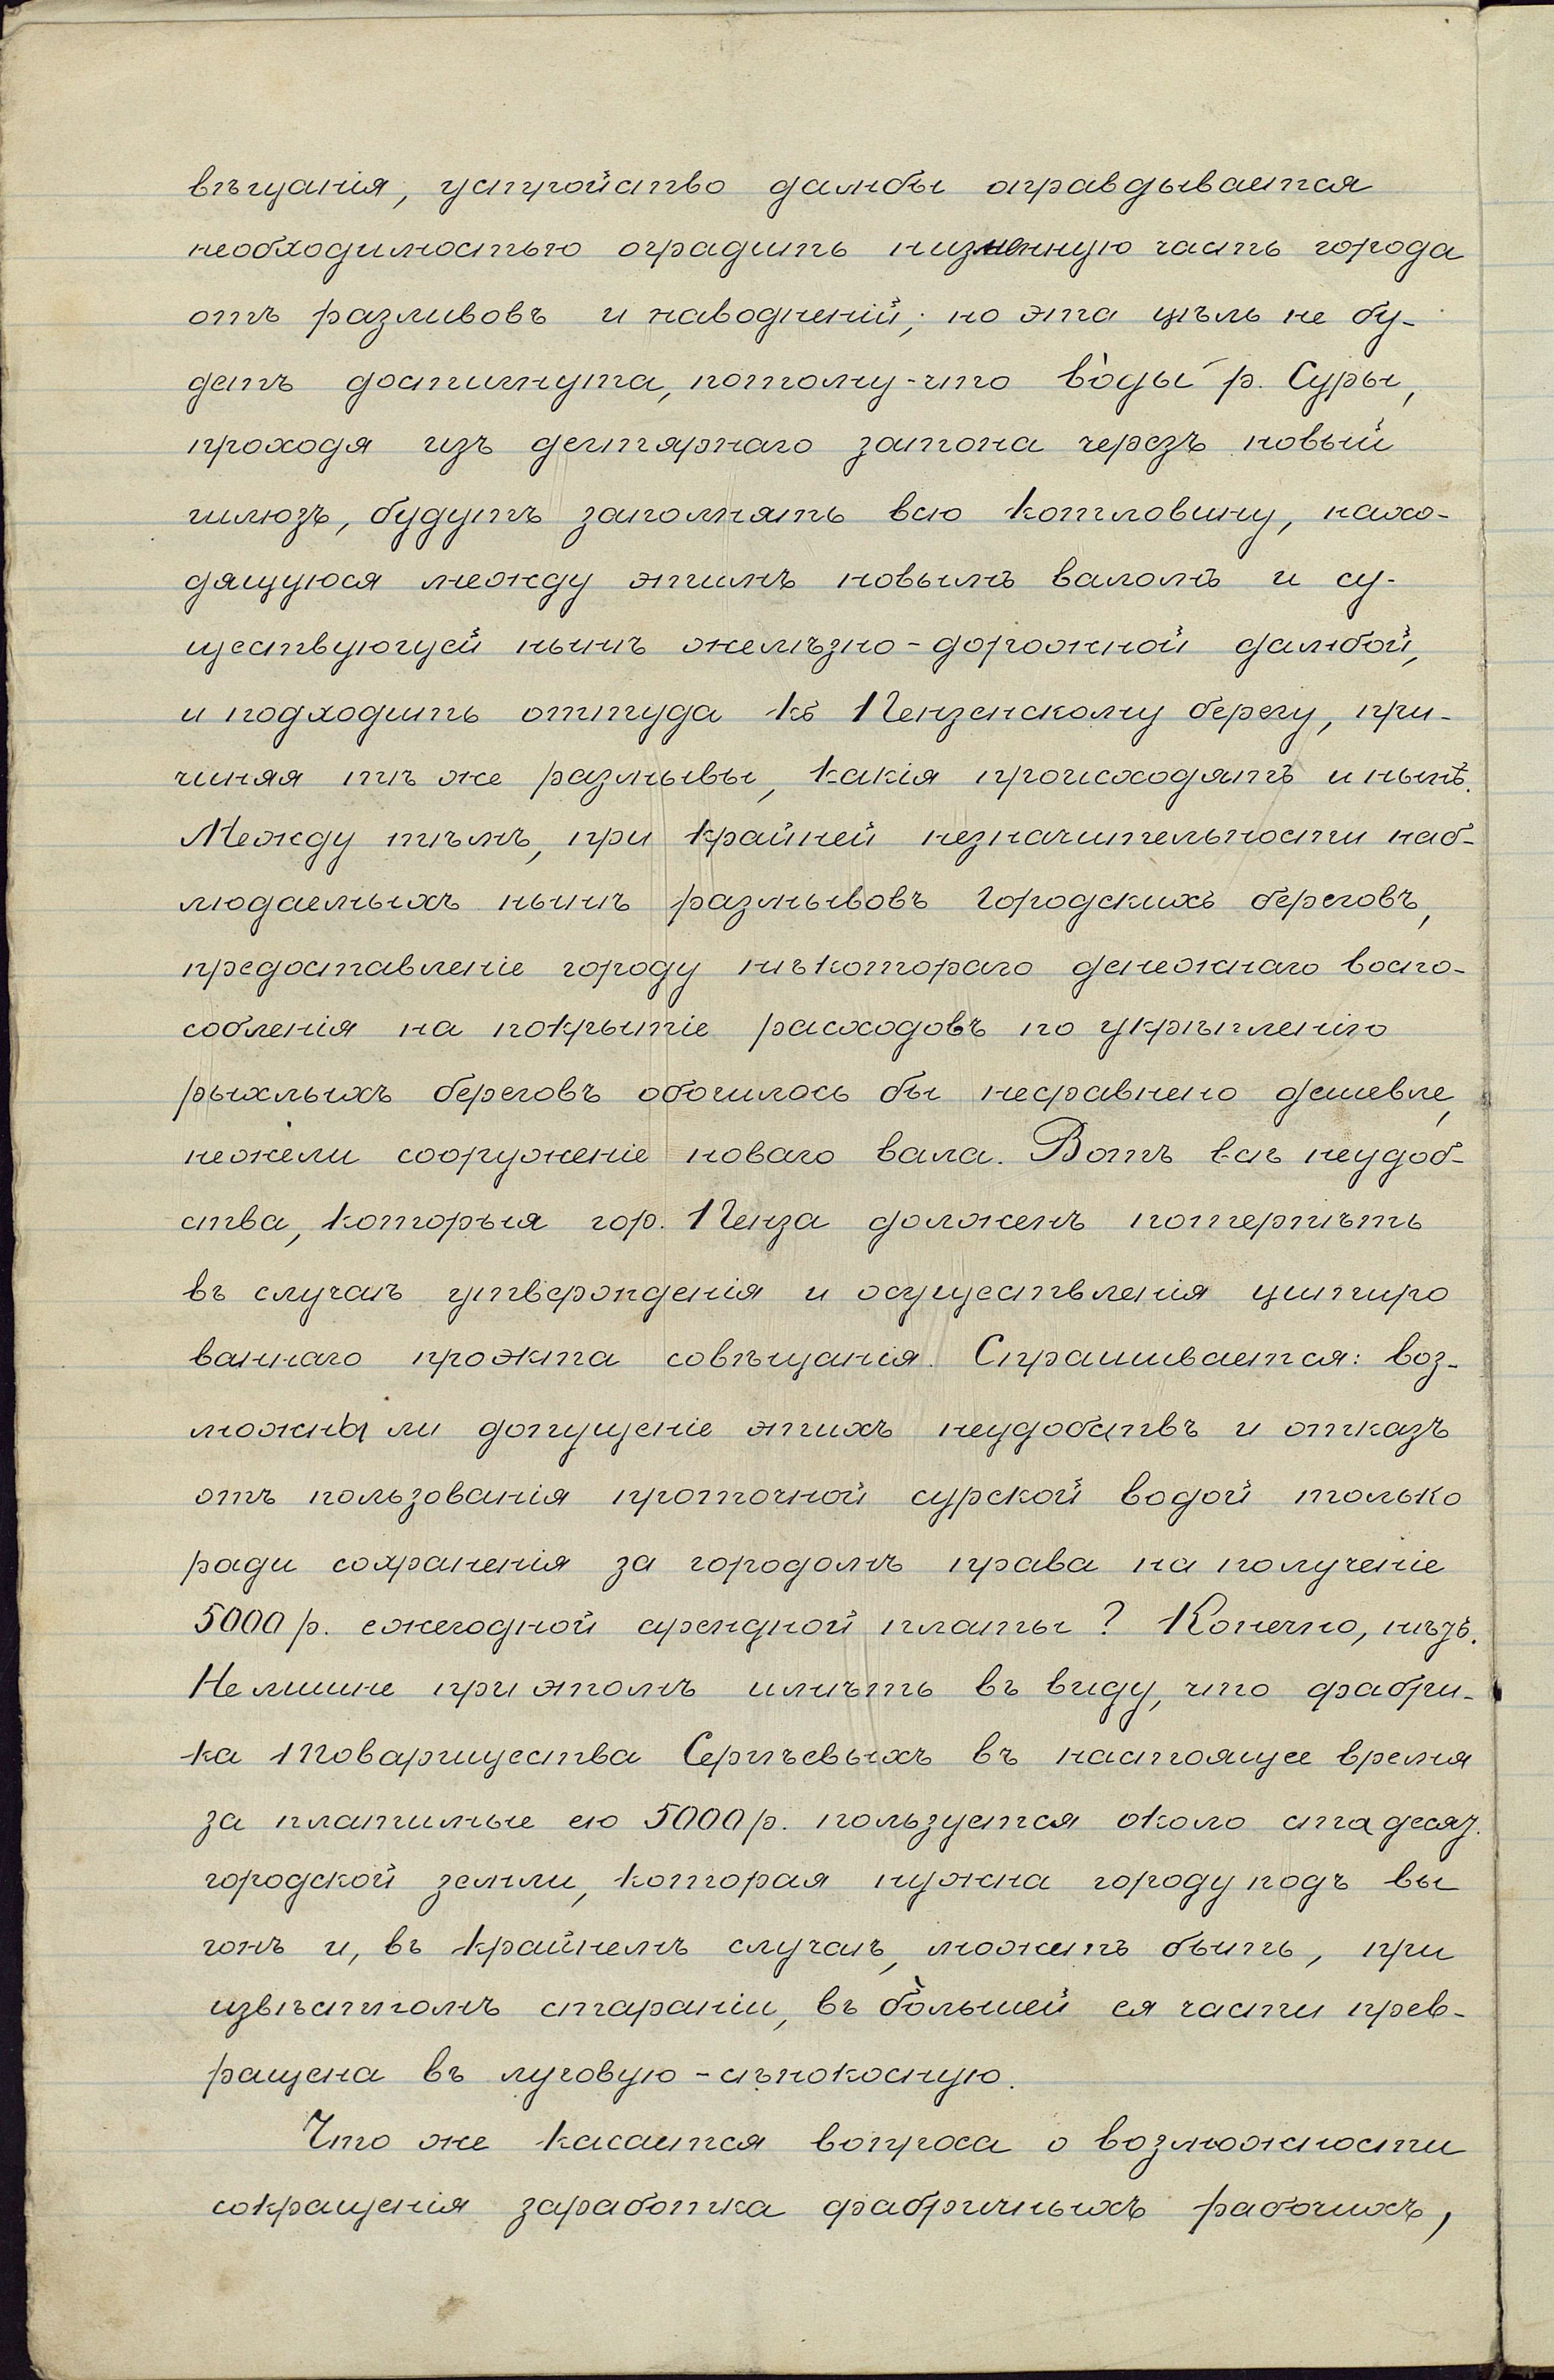 вѣщанія, устройство дамбы оправдывается
необходимостью оградить низменную часть города
отъ разливовъ и наводненій; но эта цѣль не бу-
детъ достигнута, потому-что во̀ды р. Суры,
проходя изъ дегтярнаго затона черезъ новый
шлюзъ, будутъ заполнять всю котловину, нахо-
дящуюся между этимъ новымъ валомъ и су-
ществующей нынѣ желѣзно-дорожной дамбой,
и подходить оттуда къ Пензенскому берегу, при-
чиняя тѣ же размывы, какія происходятъ и нынѣ.
Между тѣмъ, при крайней незначительности наб-
людаемыхъ нынѣ размывовъ городскихъ береговъ,
предоставленіе городу нѣкотораго денежнаго воспо-
собленія на покрытіе расходовъ по укрѣпленію
рыхлыхъ береговъ обошлось бы несравнено дешевле,
нежели сооруженіе новаго вала. Вотъ всѣ неудоб-
ства, которыя гор. Пенза долженъ потерпѣть
въ случаѣ утвержденія и осуществленія цитиро
ваннаго проэкта совѣщанія. Спрашивается: воз-
можны ли допущеніе этихъ неудобствъ и отказъ
отъ пользованія проточной сурской водой только
ради сохраненія за городомъ права на полученіе
5000 р. ежегодной арендной платы? Конечно, нѣтъ.
Нелишне при этомъ имѣть въ виду, что фабри-
ка Товарищества Сергѣевыхъ въ настоящее время
за платимые ею 5000 р. пользуется около ста десят.
городской земли, которая нужна городу подъ вы
гонъ и, въ крайнемъ случаѣ, можетъ быть, при
извѣстномъ стараніи, въ бо̀льшей ея части прев-
ращена въ луговую-сѣнокосную.
Что же касается вопроса о возможности
сокращенія заработка фабричныхъ рабочихъ,